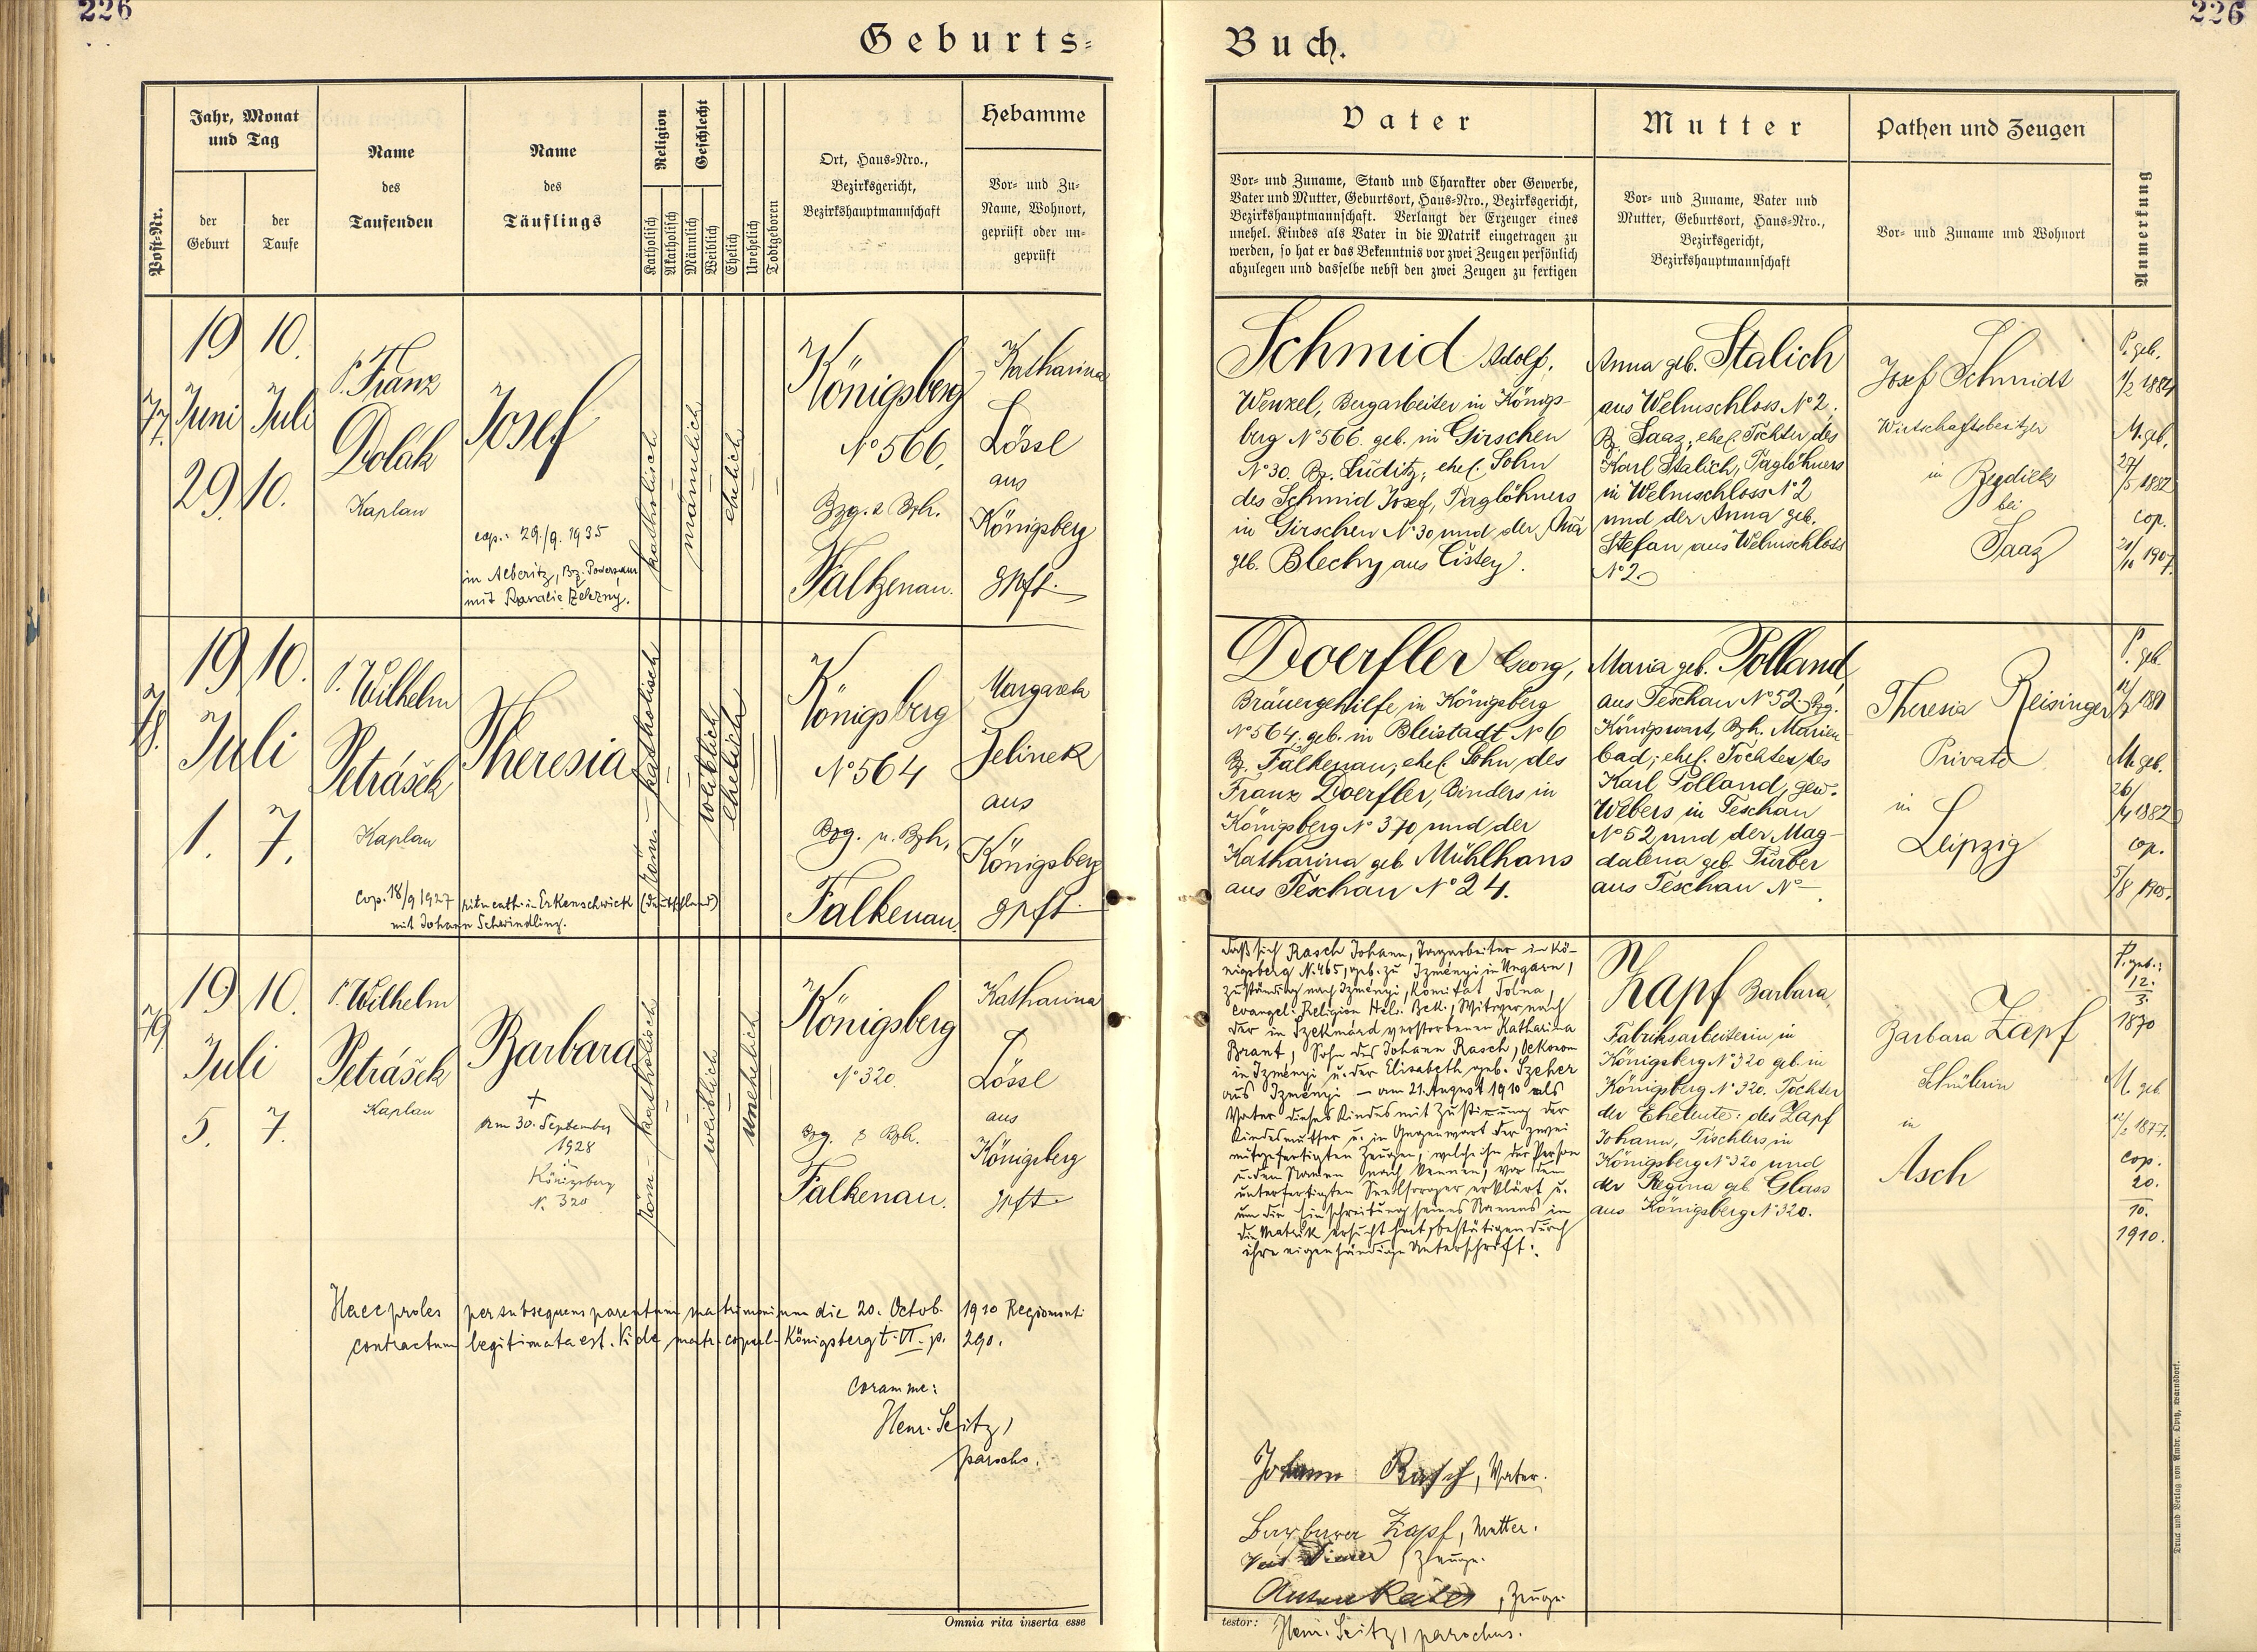 226
226
Geburts-
Buch.
Post-Nr.
Jahr, Monat
und Tag
der
Geburt
der
Taufe
Name
des
Taufenden
Name
des
Täuflings
Religion
Katholisch
Akatholisch
Geschlecht
Männlich
Weiblich
Ehelich
Unehelich
Todtgeboren
Ort, Haus-Nro.,
Bezirksgericht,
Bezirkshauptmannschaft
Hebamme
Vor- und Zu-
Name, Wohnort,
geprüft oder un-
geprüft
Vater
Vor- und Zuname, Stand und Charakter oder Gewerbe,
Vater und Mutter, Geburtsort, Haus-Nro., Bezirksgericht,
Bezirkshauptmannschaft. Verlangt der Erzeuger eines
unehel. Kindes als Vater in die Matrik eingetragen zu
werden, so hat er das Bekenntnis vor zwei Zeugen persönlich
abzulegen und dasselbe nebst den zwei Zeugen zu fertigen
Mutter
Vor- und Zuname, Vater und
Mutter, Geburtsort, Haus-Nro.,
Bezirksgericht,
Bezirkshauptmannschaft
Pathen und Zeugen
Vor- und Zuname und Wohnort
Anmerkung
77.
19 10.
Juni Juli
29. 10.
P. Franz
Dolák
Kaplan
Josef
cop.: 29./9. 1935
in Alberitz, Bz. Podersam
mit Rosalie Zelezny.
katholisch
männlich
ehelich
Königsberg
No 566.
Bzg. & Bzh.
Falkenau.
Katharina
Lössl
aus
Königsberg
gpft.
Schmid Adolf,
Wenzel, Bergarbeiter in Königs-
berg No 566. geb. in Girschen
No 30. Bz. Luditz; ehel. Sohn
des Schmid Josef, Taglöhners
in Girschen No 30 und der Ana
geb. Blechy aus Listey.
Anna geb. Stalich
aus Welmschloss No 2.
Bz. Saaz; ehel. Tochter des
Karl Stalich, Taglöhners
in Welmschloss No 2
und der Anna geb.
Stefan aus Welmschloss
No 2.
Josef Schmidt
Wirtschaftsbesitzer
in
bei
Saaz
P. geb.
1/2 1884
M. geb.
27/5 1882
cop.
21/10 1907.
78.
19 10.
Juli
1. 7.
P. Wilhelm
Petrášek
Kaplan
Theresia
Cop. 18/9 1927 ritu cath. in Erkenschwick (Deutschland)
mit Johann Schwindling.
röm - katholisch
weiblich
ehelich
Königsberg
No 564
Bzg. u. Bzh.
Falkenau.
Margareta
Jelinek
aus
Königsberg
gpft.
Doerfler Georg,
Bräuergehilfe, in Königsberg
No 564. geb. in Bleistadt No 6
Bz. Falkenau; ehel. Sohn des
Franz Doerfler, Binders in
Königsberg No 370 und der
Katharina geb. Mühlhans
aus Teschau No 24.
Maria geb. Polland,
aus Teschau No 52. Bzg.
Königswart, Bzh. Marien-
bad; ehel. Tochter des
Karl Polland, gew.
Webers in Teschau
No 52 und der Mag-
dalena geb. Türber
aus Teschau No -.
Theresia Reisinger
Private
in
Leipzig
P. geb.
1881
M. geb.
1882
cop.
5/8 1905.
79.
19 10.
Juli
5. 7.
P. Wilhelm
Petrášek
Kaplan
Barbara
+
Am 30. September
1928
in
Königsberg
N. 320
röm - katholisch
weiblich
unehelich
Königsberg
No 320.
Bzg. & Bzh.
Falkenau.
Katharina
Lössl
aus
Königsberg
gpft.
Daß sich Rasch Johann, Tagarbeiter in Kö-
nigsberg N. 465, geb. zu Izményi in Ungarn,
zuständig nach Izményi, Komitat Tolna,
evangel. Religion Helv. Bek., Witwer nach
der in Szekszárd verstorbenen Katharina
Brant, Sohn des Johann Rasch, Oekonom
in Izményi u. der Elisabeth geb. Szeher
aus Izményi - am 21. August 1910 als
Vater dieses Kindes mit Zustimmung der
Kindesmutter u. in Gegenwart der zwei
mitgefertigten Zeugen, welche ihn der Person
u. dem Namen nach kennen, vor dem
unterfertigten Seelsorger erklärt u.
um die Einschreibung seines Namens in
die Matrik ersucht hat, bestätigen durch
ihre eigenhändige Unterschrift:
Zapf Barbara
Fabriksarbeiterin, in
Königsberg No 320 geb. in
Königsberg No 320. Tochter
der Eheleute: des Zapf
Johann, Tischlers in
Königsberg No 320 und
der Regina geb. Glass
aus Königsberg No 320.
Barbara Zapf
Schülerin
in
Asch
P. geb.:
12.
3.
1870
M. geb.
1877.
cop.
20.
10.
1910.
Haec proles per subsequens parentum matrimonium die 20. Octob. 1910 Regiomonti
contractum legitimata est. Vide matr. copul. Königsberg t. VI. p. 290.
Coram me:
Henr. Seitz,
parochus.
Johann Rasch, Vater.
Barbara Zapf, Mutter.
Zeuge.
Anton, Zeuge.
Omnia rita inserta esse
testor: Henr. Seitz, parochus.
Druck und Verlag von Ambr. Opitz, Warnsdorf.